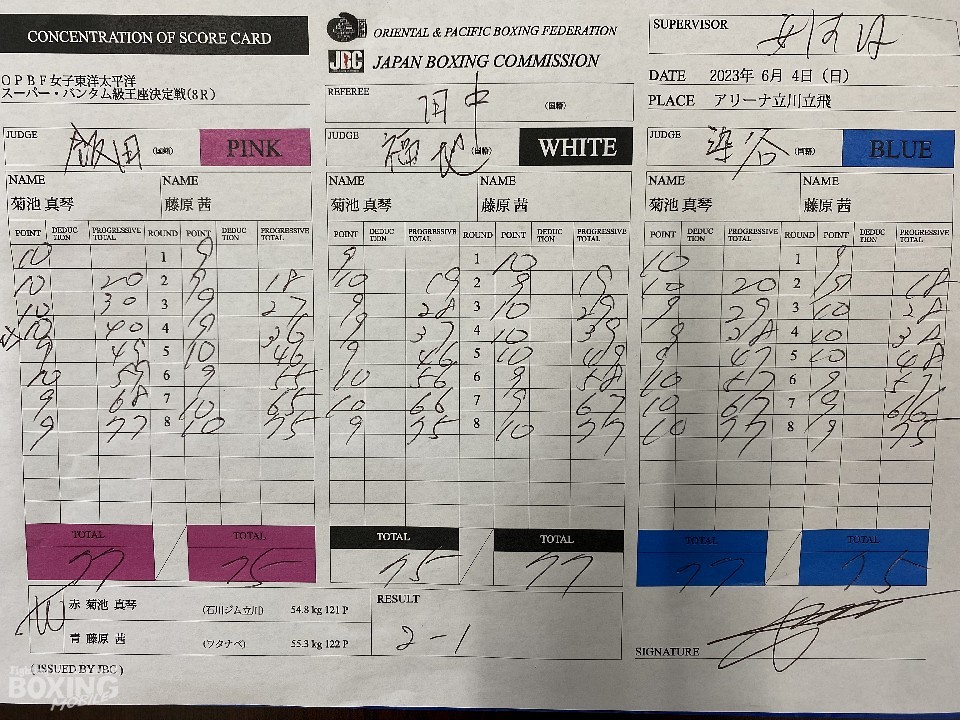 CONCENTRATION OF SCORE CARD
ORIENTAL & PACIFIC BOXING FEDERATION
JBC JAPAN BOXING COMMISSION
SUPERVISOR
ＯＰＢＦ女子東洋太平洋
スーパー・バンタム級王座決定戦(8Ｒ)
REFEREE 田中 (国籍)
DATE 2023年 6月 4日 (日)
PLACE アリーナ立川立飛
JUDGE 飯田 (国籍) PINK
JUDGE 福地 (国籍) WHITE
JUDGE 染谷 (国籍) BLUE
NAME NAME NAME NAME NAME NAME
菊池 真琴 藤原 茜 菊池 真琴 藤原 茜 菊池 真琴 藤原 茜
POINT DEDUCTION PROGRESSIVE TOTAL ROUND POINT DEDUCTION PROGRESSIVE TOTAL POINT DEDUCTION PROGRESSIVE TOTAL ROUND POINT DEDUCTION PROGRESSIVE TOTAL POINT DEDUCTION PROGRESSIVE TOTAL ROUND POINT DEDUCTION PROGRESSIVE TOTAL
10 1 9 9 1 10 10 1 9
10 20 2 9 18 10 19 2 9 19 10 20 2 9 18
10 30 3 9 27 9 28 3 10 29 9 29 3 10 28
10 40 4 9 36 9 37 4 10 39 9 38 4 10 38
9 49 5 10 46 9 46 5 10 49 9 47 5 10 48
10 59 6 9 55 10 56 6 9 58 10 57 6 9 57
9 68 7 10 65 10 66 7 9 67 10 67 7 9 66
9 77 8 10 75 9 75 8 10 77 10 77 8 9 75
TOTAL TOTAL TOTAL TOTAL TOTAL TOTAL
77 / 75 75 / 77 77 / 75
赤 菊池 真琴 (石川ジム立川) 54.8 kg 121 P
青 藤原 茜 (ワタナベ) 55.3 kg 122 P
RESULT
2-1
SIGNATURE
( ISSUED BY JBC )
BOXING
MOBILE